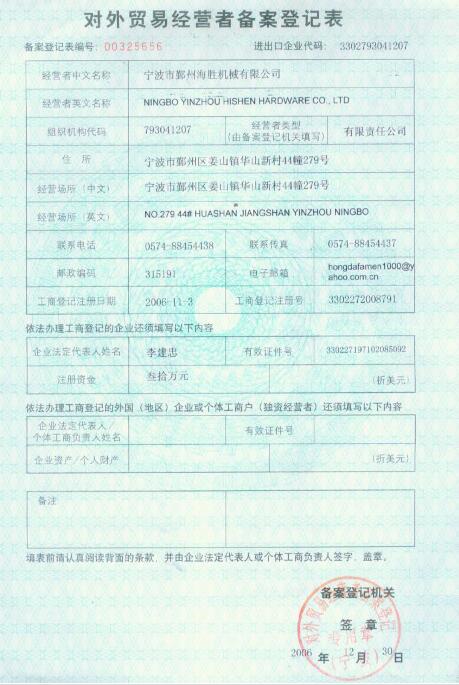 对外贸易经营者备案登记表
备案登记表编号: 00325656 进出口企业代码: 3302793041207
经营者中文名称 宁波市鄞州海胜机械有限公司
经营者英文名称 NINGBO YINZHOU HISHEN HARDWARE CO., LTD
组织机构代码 793041207 经营者类型 有限责任公司
(由备案登记机关填写)
住 所 宁波市鄞州区姜山镇华山新村44幢279号
经营场所(中文) 宁波市鄞州区姜山镇华山新村44幢279号
经营场所(英文) NO.279 44# HUASHAN JIANGSHAN YINZHOU NINGBO
联系电话 0574-88454438 联系传真 0574-88454437
邮政编码 315191 电子邮箱 hongdafamen1000@y
ahoo.com.cn
工商登记注册日期 2006-11-3 工商登记注册号 3302272008791
依法办理工商登记的企业还须填写以下内容
企业法定代表人姓名 李建忠 有效证件号 330227197102085092
注册资金 叁拾万元 (折美元)
依法办理工商登记的外国(地区)企业或个体工商户(独资经营者)还须填写以下内容
企业法定代表人/
个体工商负责人姓名 有效证件号
企业资产/个人财产 (折美元)
备注
填表前请认真阅读背面的条款,并由企业法定代表人或个体工商负责人签字、盖章。
备案登记机关
签 章
2006 年 12 月 30 日
对外贸易经营者备案登记
专用章
(宁波)